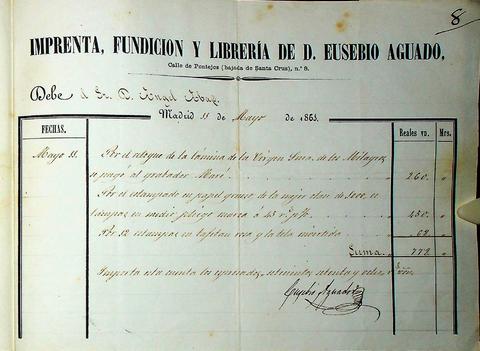 8
IMPRENTA, FUNDICION Y LIBRERÍA DE D. EUSEBIO AGUADO,
Calle de Pontejos (bajada de Santa Cruz), n.º 8.
Debe el Sr. D. Angel
Madrid 11 de Mayo de 1865
FECHAS. Reales vn. Mrs.
Mayo 11. Por el retoque de la lámina de la Virgen Sma. de los Milagros
se pagó al grabador Maré 260.
Por el estampado en papel grueso de la mejor clase de
estampas en medio pliego marca á 45 450.
Por 12 estampas en tafetan rosa y la tela invertida 68.
Suma. 778.
Importa esta cuenta los espresados setecientos setenta y ocho rs. vn.
Eusebio Aguado